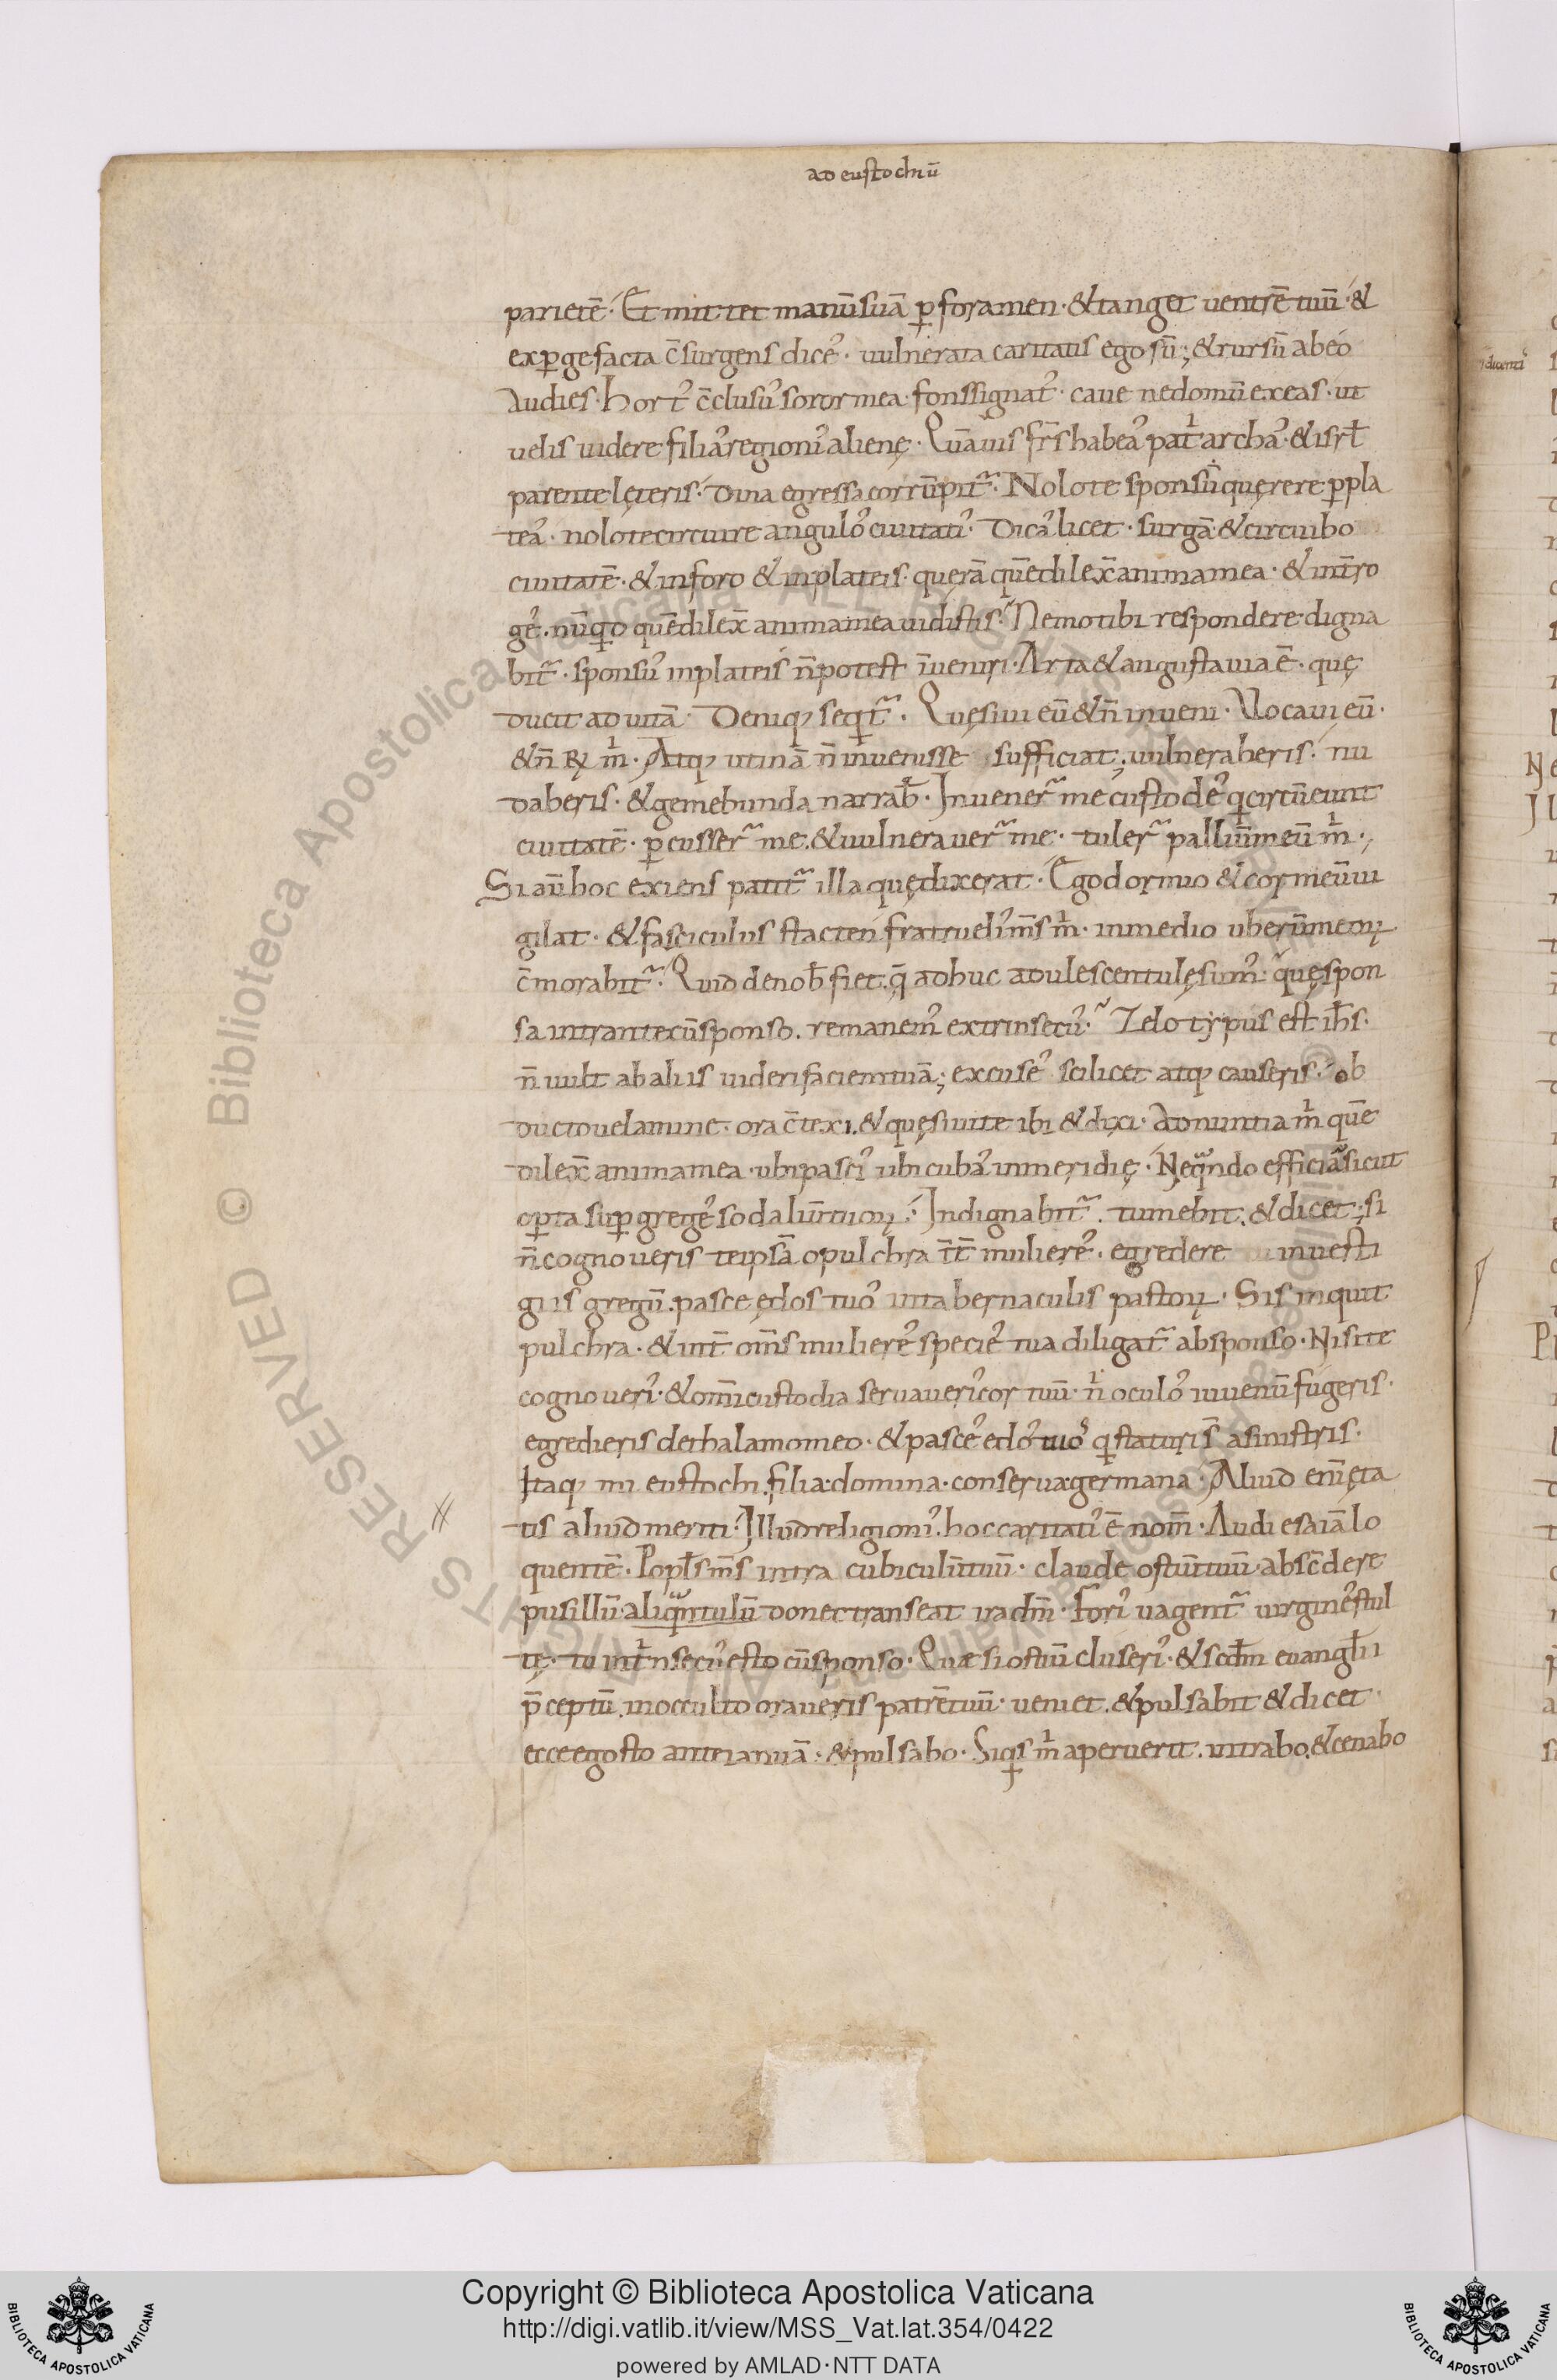 ad eustochiū
parietē. Et mittet manū suā ꝑ foramen. & tanget uentrē tuū. &
exꝑgefacta c̄surgens dicesˀ. uulnerata caritatis ego sū; & rursū ab eo
Audies. Hortˀ c̄clususˀ soror mea. fons signatˀ. caue ne domū exeas. ut
uelis uidere filiasˀ regionisˀ alienę. Quāuis fr̄s habeasˀ patriarchasˀ. & isrł
parente lęteris. dina egressa corrūpit᷑. Nolo te sponsū querere ꝑ pla
teasˀ. nolo te circuire angulosˀ ciuitatisˀ. Dicasˀ licet. surgā. & circuibo
ciuitatē. & in foro & in plateis. querā quē dilex̄ anima mea. & int̄ro
gesˀ. nūquid quē dilex̄ anima mea uidistis. Nemo tibi respondere digna
bit᷑. sponsusˀ in plateis n̄ potest īueniri. Arta & angusta uia ē. quę
ducit ad uitā. Deniq; sequit᷑. Quęsiui eū & n̄ inueni. Uocaui eū.
& n̄ ꝶ m̍. Atq; utinā n̄ inuenisse sufficiat; uulneraberis. nu
daberis. & gemebunda narrab̄. Inuener᷑ me custodesˀ qui circūeunt
ciuitatē. ꝑcusser᷑ me. & uulnerauer᷑ me. tuler᷑ palliū meū m̍.;
Si aū hoc exiens patit᷑ illa quę dixerat. Ego dormio & cor meū ui
gilat. & fasciculus stacten fratruelisˀ m̄s m̍. in medio uberū meoꝝ
c̄morabit᷑. Quid de nob̄ fiet. q̄ adhuc adulescentulę sumˀ. quę spon
sa intrante cū sponso. remanemˀ extrinsecusˀ. Zelotypus est ih̄s.
n̄ uult ab aliis uideri faciem tuā; excusesˀ scilicet atq; causeris. ob
ducto uelamine. ora c̄texi. & quęsiui te ibi & dixi. Adnuntia m̍ quē
dilex̄ anima mea. ubi pascisˀ ubi cubasˀ in meridię. Nequando efficiar᷑ sicut
oꝑta suꝑ gregesˀ sodaliū tuoꝝ. Indignabit᷑. tumebit. & dicet; si
n̄ cognoueris teipsā o pulchra int̄ mulieresˀ. egredere in uesti
giis gregū. pasce ędos tuosˀ in tabernaculis pastoꝝ. Sis inquit
pulchra. & int̄ om̄s mulieresˀ speciesˀ tua diligat᷑ ab sponso. Nisi te
cognouerisˀ. & om̄i custodia seruauerisˀ cor tuū. n̍ oculosˀ iuuenū fugeris.
egredieris de thalamo meo. & pascesˀ edosˀ tuosˀ qui staturi s̄ a sinistris.
Itaq; mi eustochi. filia. domina. conserua. germana. Aliud enī ęta
tis aliud meriti. Illud religionisˀ. hoc caritatisˀ ē nom̄. Audi esaiā lo
quentē. Popłs m̄s intra cubiculū tuū. claude ostiū tuū. absc̄dere
pusillū. aliquantulū donec transeat ira dn̄i. Forisˀ uagent᷑ uirginesˀ stul
tę. tu int̍nsecusˀ esto cū sponso. Quae si ostiū cluserisˀ. & scdm̄ euangłii
p̄ceptū. in occulto oraueris patrē tuū. ueniet. & pulsabit & dicet
ecce ego sto ante ianuā. & pulsabo. Siquis m̍ aperuerit. intrabo. & cenabo
Copyright © Biblioteca Apostolica Vaticana
http://digi.vatlib.it/view/MSS_Vat.lat.354/0422
powered by AMLAD·NTT DATA